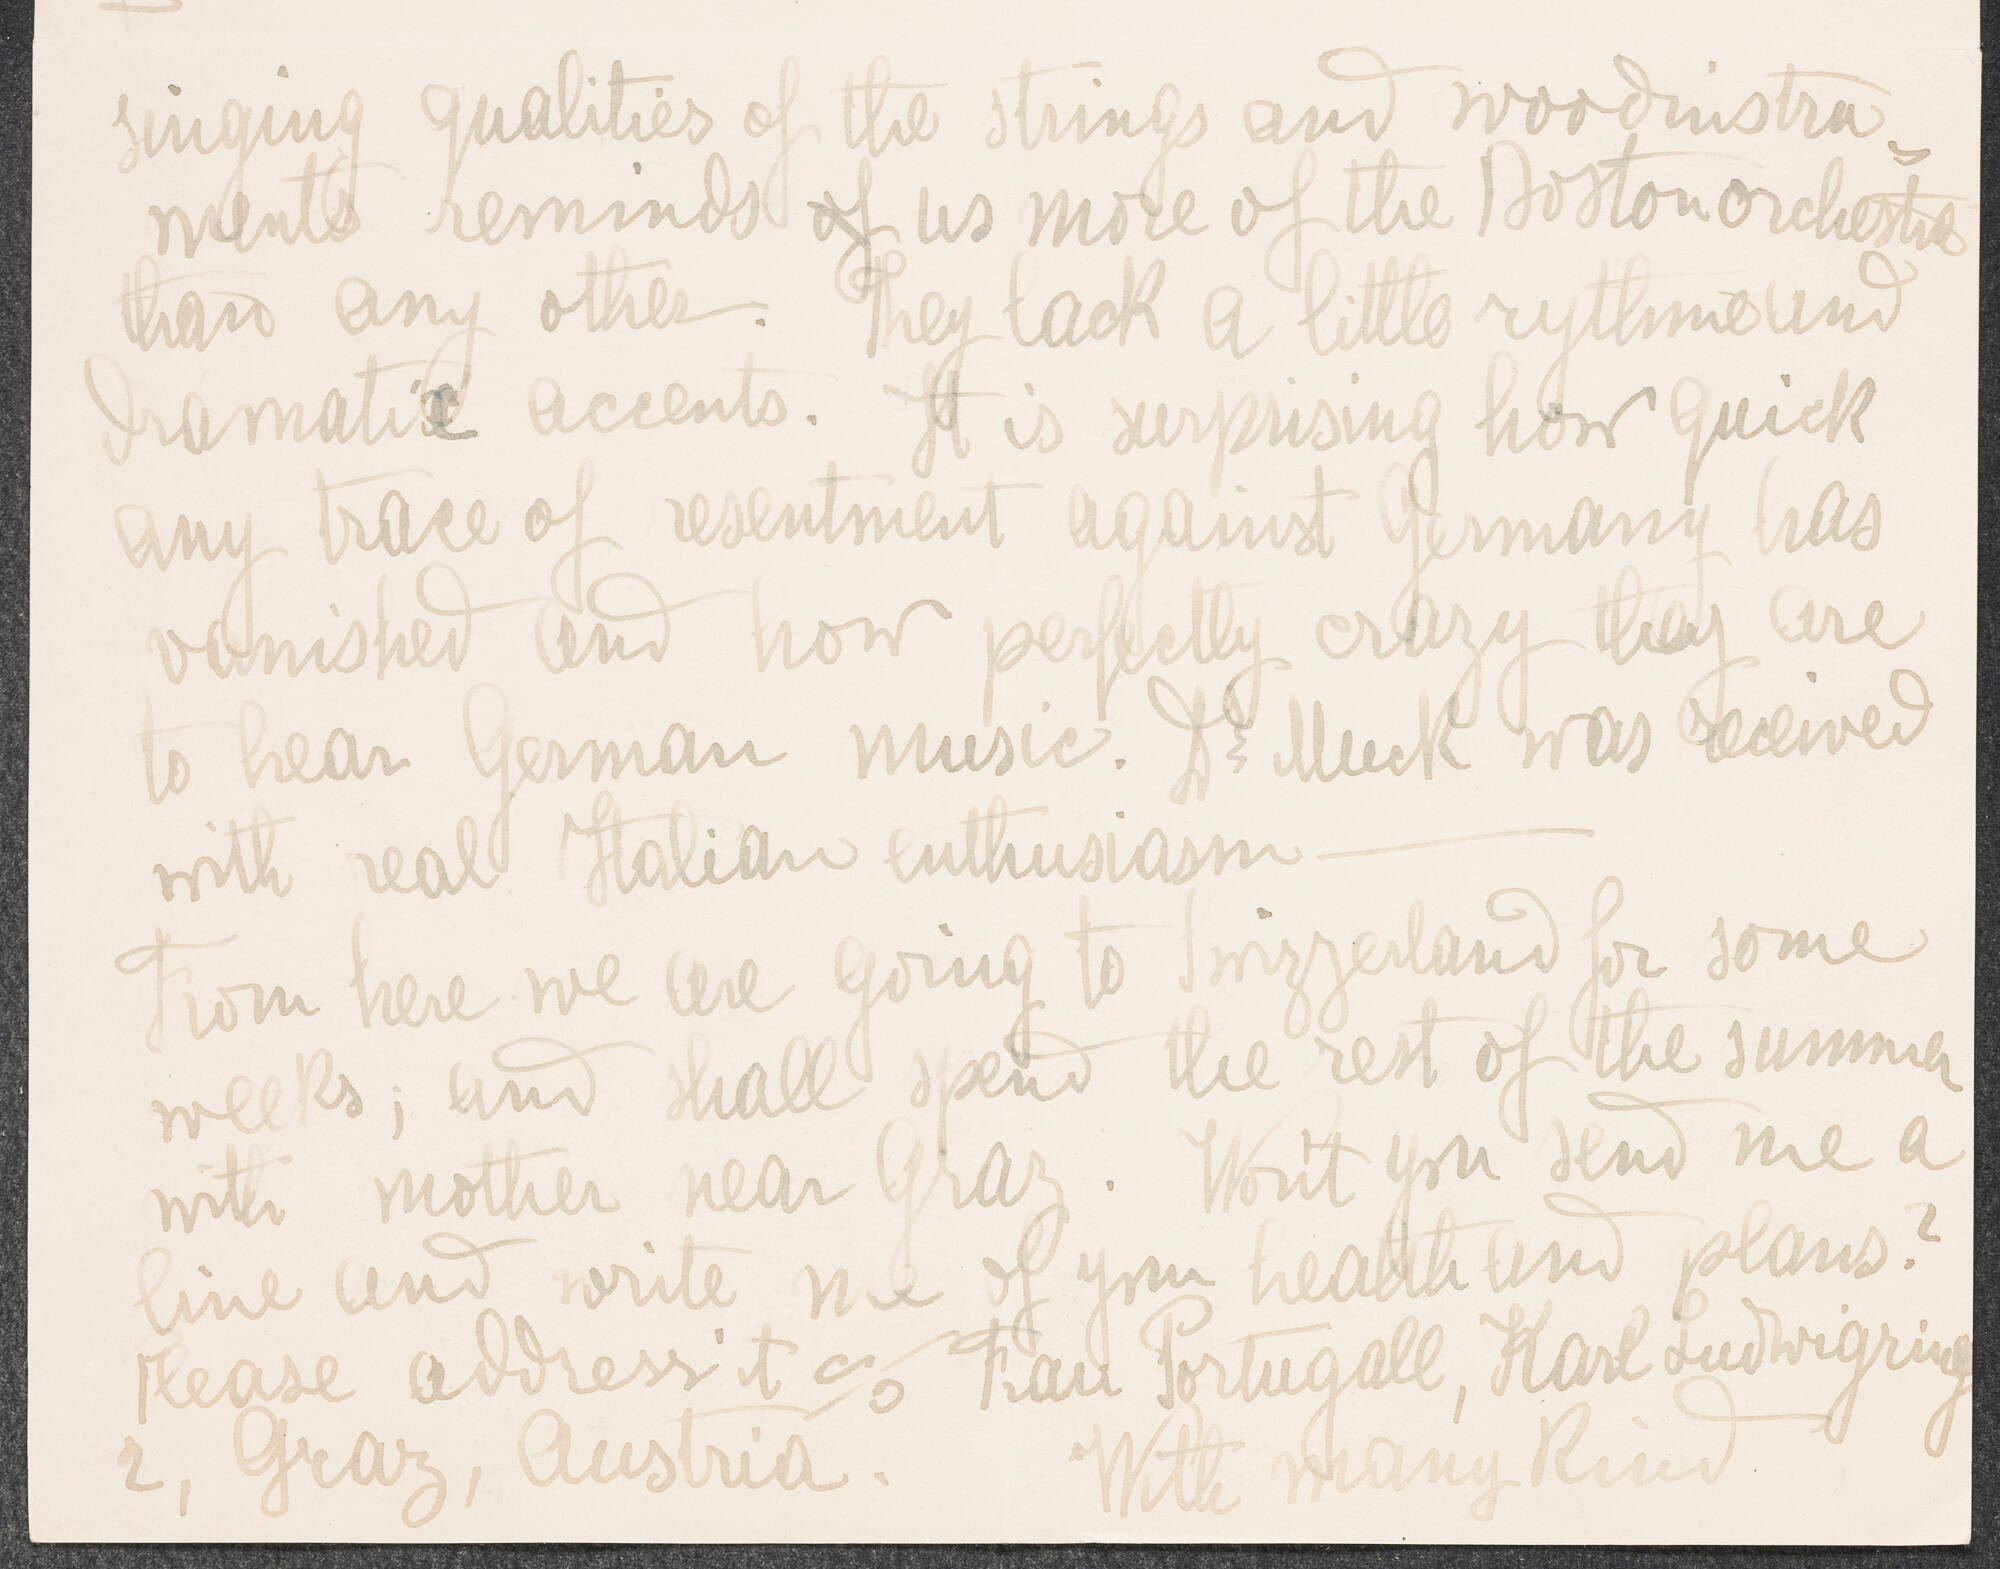 singing qualities of the strings and woodinstru-
ments reminds of us more of the Boston orchestra
than any other. They lack a little rythme and
dramatic accents. It is surprising how quick
any trace of resentment against Germany has
vanished and how perfectly crazy they are
to hear German music. Dr Muck was received
with real Italian enthusiasm —
From here we are going to Swizzerland for some
weeks; and shall spend the rest of the summer
with mother near Graz. Won't you send me a
line and write me of your health and plans?
Please address it c/o Frau Portugall, Karl Ludwigring
2, Graz, Austria. With many kind